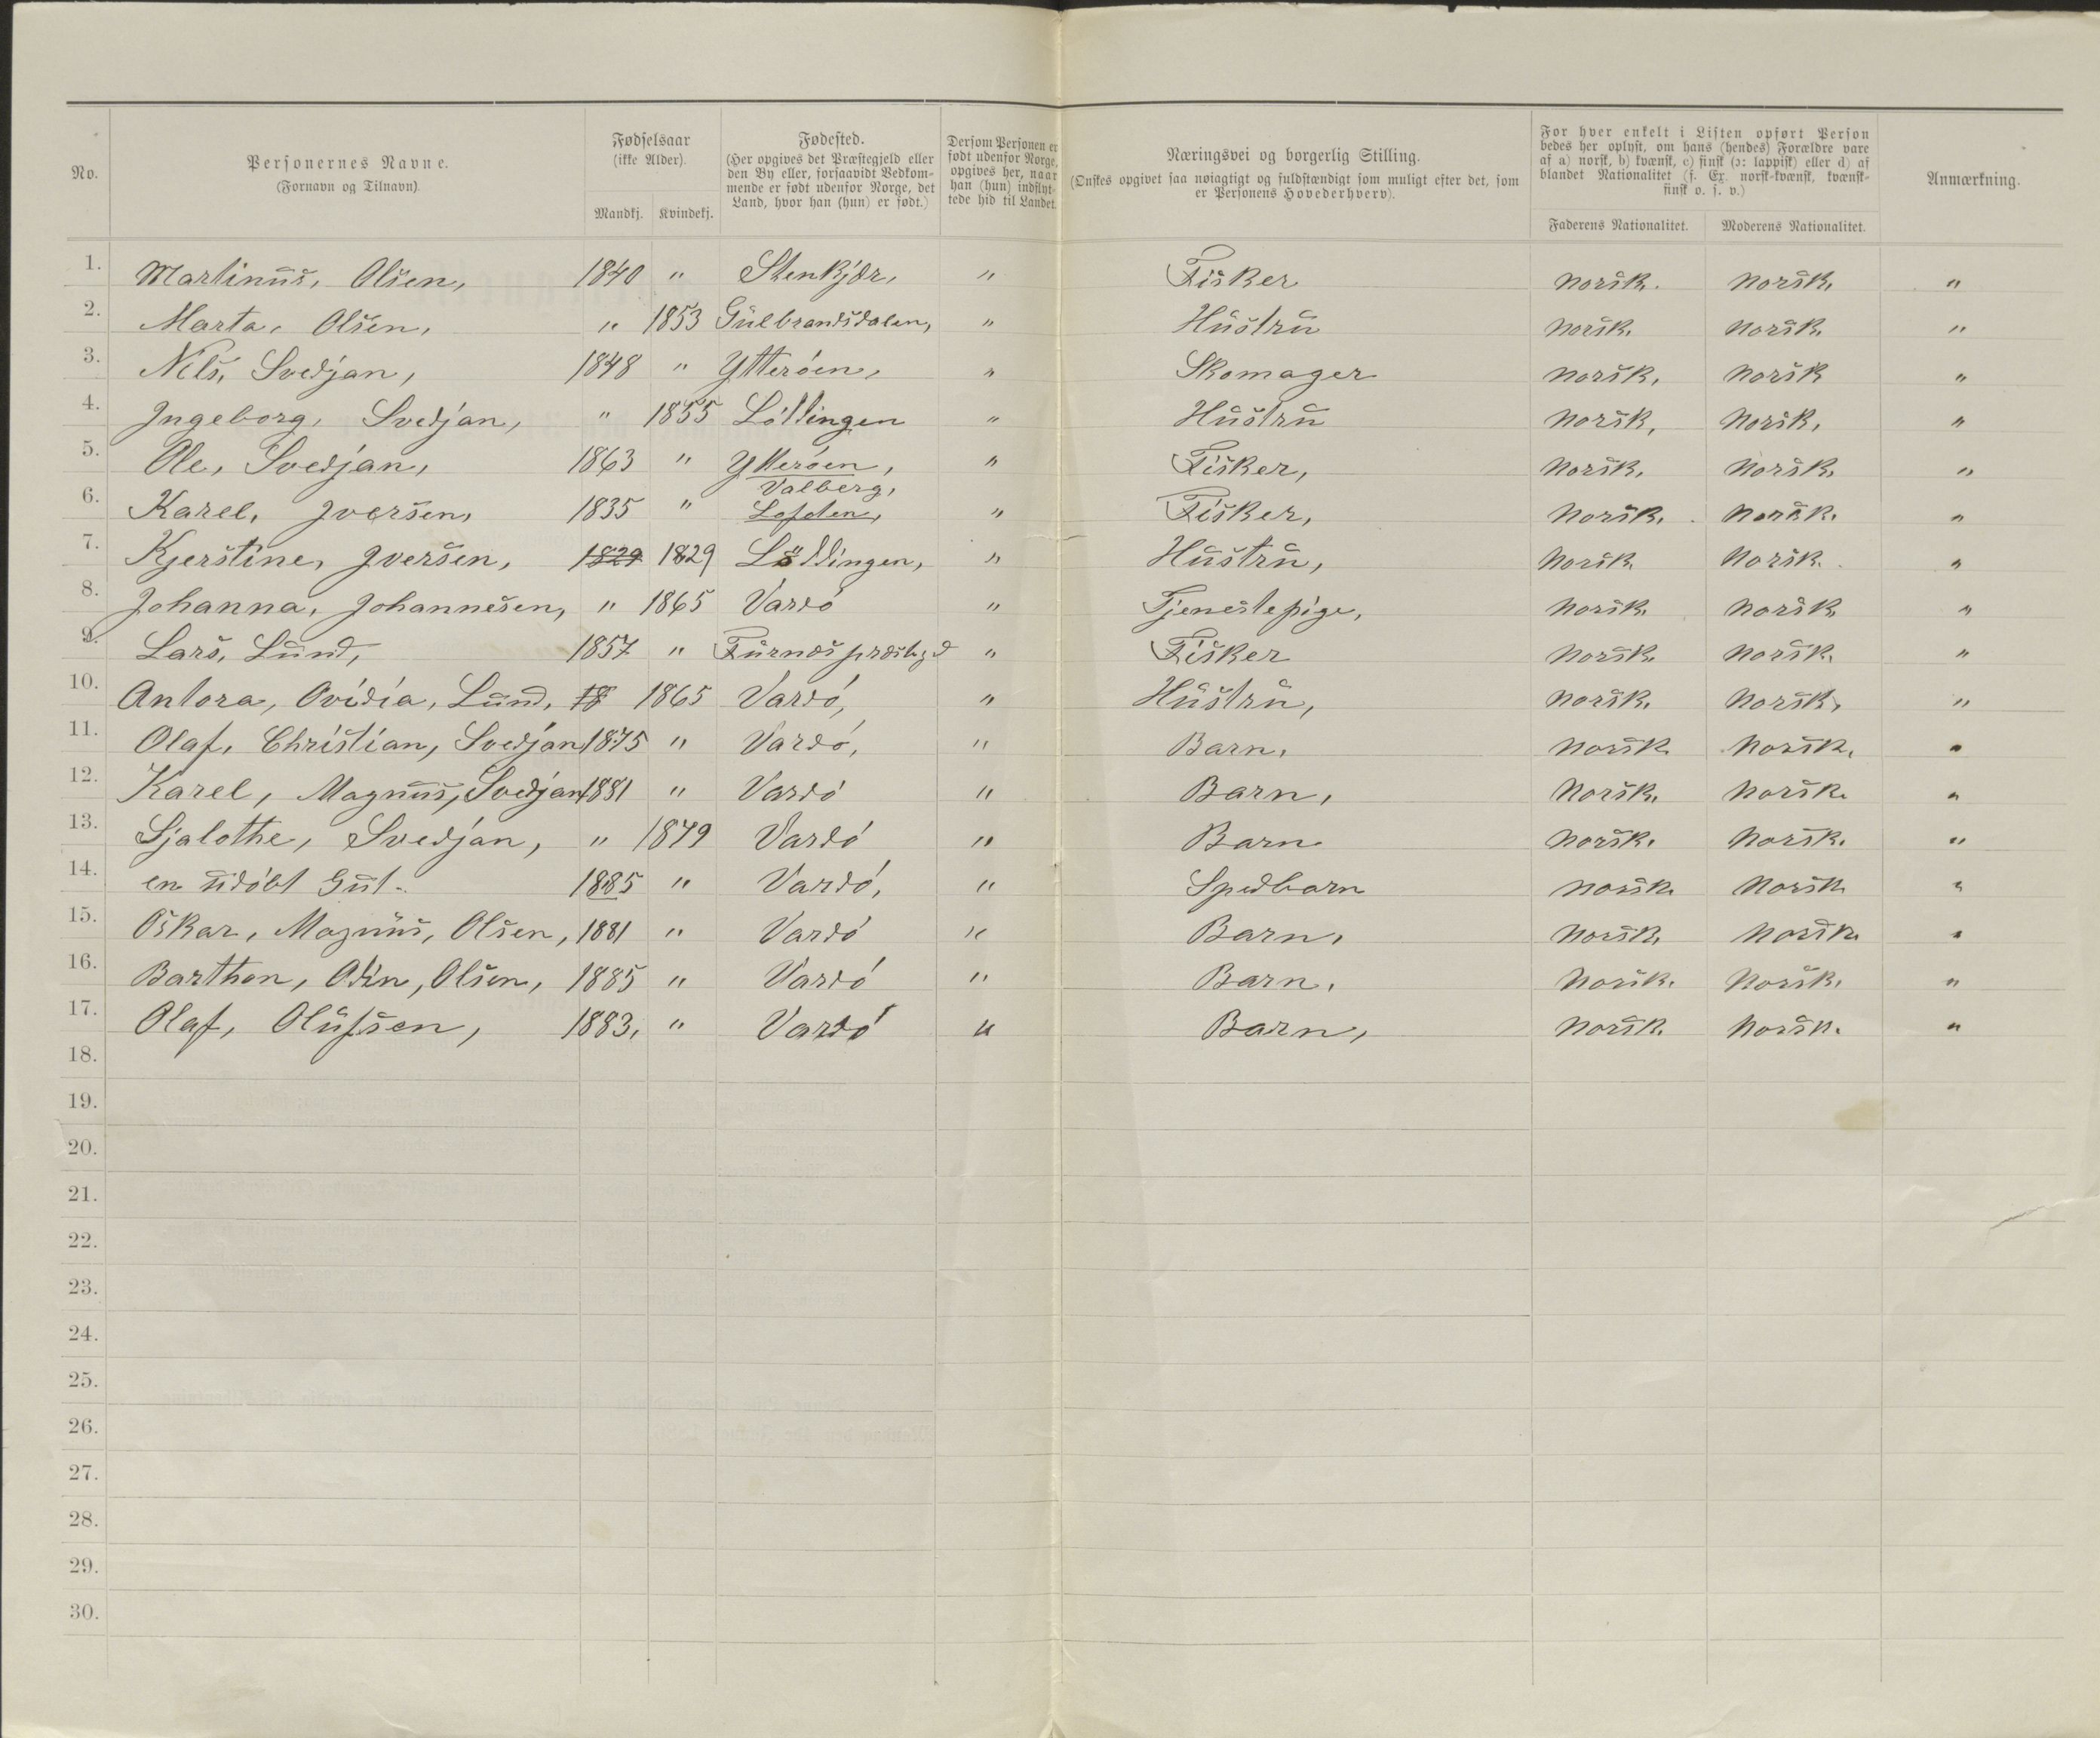 No.
Personernes Navne.
(Fornavn og Tilnavn).
Fødselsaar
(ikke Alder).
Mandkj. Kvindekj.
Fødested.
(Her opgives det Præstegjeld eller
den By eller, forsaavidt Vedkom-
mende er født udenfor Norge, det
Land, hvor han (hun) er født.)
Dersom Personen er
født udenfor Norge,
opgives her, naar
han (hun) indflyt-
tede hid til Landet.
Næringsvei og borgerlig Stilling.
(Ønskes opgivet saa nøiagtigt og fuldstændigt som muligt efter det, som
er Personens Hovederhverv).
For hver enkelt i Listen opført Person
bedes her oplyst, om hans (hendes) Forældre vare
af a) norsk, b) kvænsk, c) finsk (ɔ: lappisk) eller d) af
blandet Nationalitet (f. Ex. norsk-kvænsk, kvænsk-
finsk o. s. v.)
Faderens Nationalitet. Moderens Nationalitet.
Anmærkning.
1. Martinus, Olsen, 1840 " Stenkjær, " Fisker norsk. norsk, "
2. Marta, Olsen, " 1853 Gulbrandsdalen, " Hustru norsk. norsk, "
3. Nils, Svedjan, 1848 " Ytterøen, " Skomager norsk, norsk "
4. Ingeborg, Svedjan, " 1855 Lødingen " Hustru norsk, norsk, "
5. Ole, Svedjan, 1863 " Ytterøen, " Fisker, norsk, norsk, "
Valberg,
6. Karel, Iversen, 1835 " Lofoten, " Fisker, norsk. norsk. "
7. Kjerstine, Iversen, 1829 1829 Lødingen, " Hustru, norsk norsk. "
8. Johanna, Johannesen, " 1865 Vardø " Tjenestepige, norsk norsk "
9. Lars, Lund, 1857 " Furnæs præstegd " Fisker norsk norsk, "
10. Antora, Ovidia, Lund, 18 1865 Vardø, " Hustru, norsk. norsk, "
11. Olaf, Christian, Svedjan 1875 " Vardø, " Barn, norsk norsk, "
12. Karel, Magnus, Svedjan 1881 " Vardø " Barn, norsk, norsk "
13. Sjalothe, Svedjan, " 1879 Vardø " Barn norsk. norsk. "
14. en udøbt Gut. 1885 " Vardø, " Spædbarn norsk. norsk "
15. Oskar, Magnus, Olsen, 1881 " Vardø " Barn, norsk, norsk "
16. Barthon, Odin, Olsen, 1885 " Vardø " Barn, norsk. norsk. "
17. Olaf, Olufsen, 1883, " Vardø " Barn, norsk. norsk. "
18.
19.
20.
21.
22.
23.
24.
25.
26.
27.
28.
29.
30.